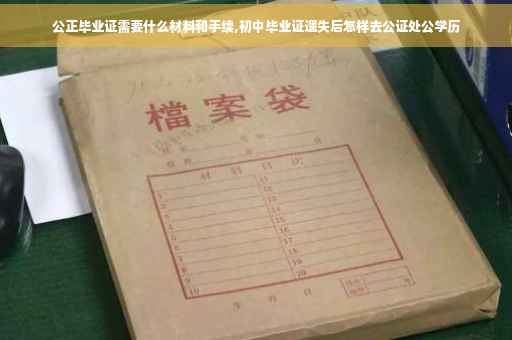 公正毕业证需要什么材料和手续,初中毕业证遗失后怎样去公证处公学历
檔案袋
材料目次
1 11
2 12
3 13
4 14
5 15
6 16
7 17
8 18
9 19
10 20
年 月 日